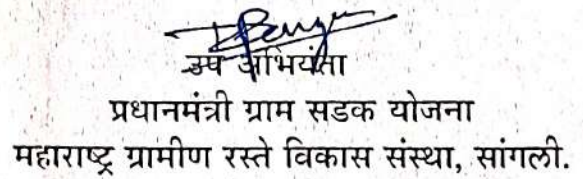 उप अभियंता
प्रधानमंत्री ग्राम सडक योजना
महाराष्ट्र ग्रामीण रस्ते विकास संस्था, सांगली.